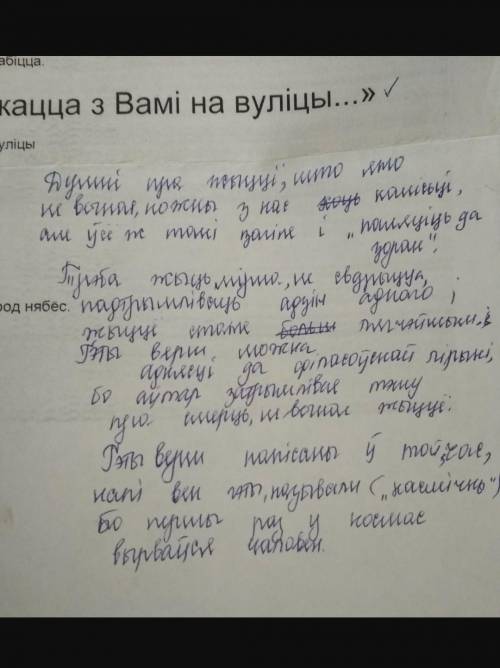 абіцца.
кацца з Вамі на вуліцы...»
уліцы
Думкі пра жыцці, што яно
не вечнае, кожны з нас хоць калісьці,
але ўсё ж такі загіне і „паляціць да
зорак".
Трэба жыць мірна, не сварыцца,
род нябес.
падтрымліваць адзін аднаго,
жыццё стане больш лягчэйшым.
Гэты верш можна
аднесці да філасоўскай лірыкі,
бо аўтар затрымлівае тэму
пра смерць, не вечнае жыццё.
Гэты верш напісаны ў той час,
калі век гэты называлі („касмічны")
Бо першы раз у космас
вырваўся чалавек.